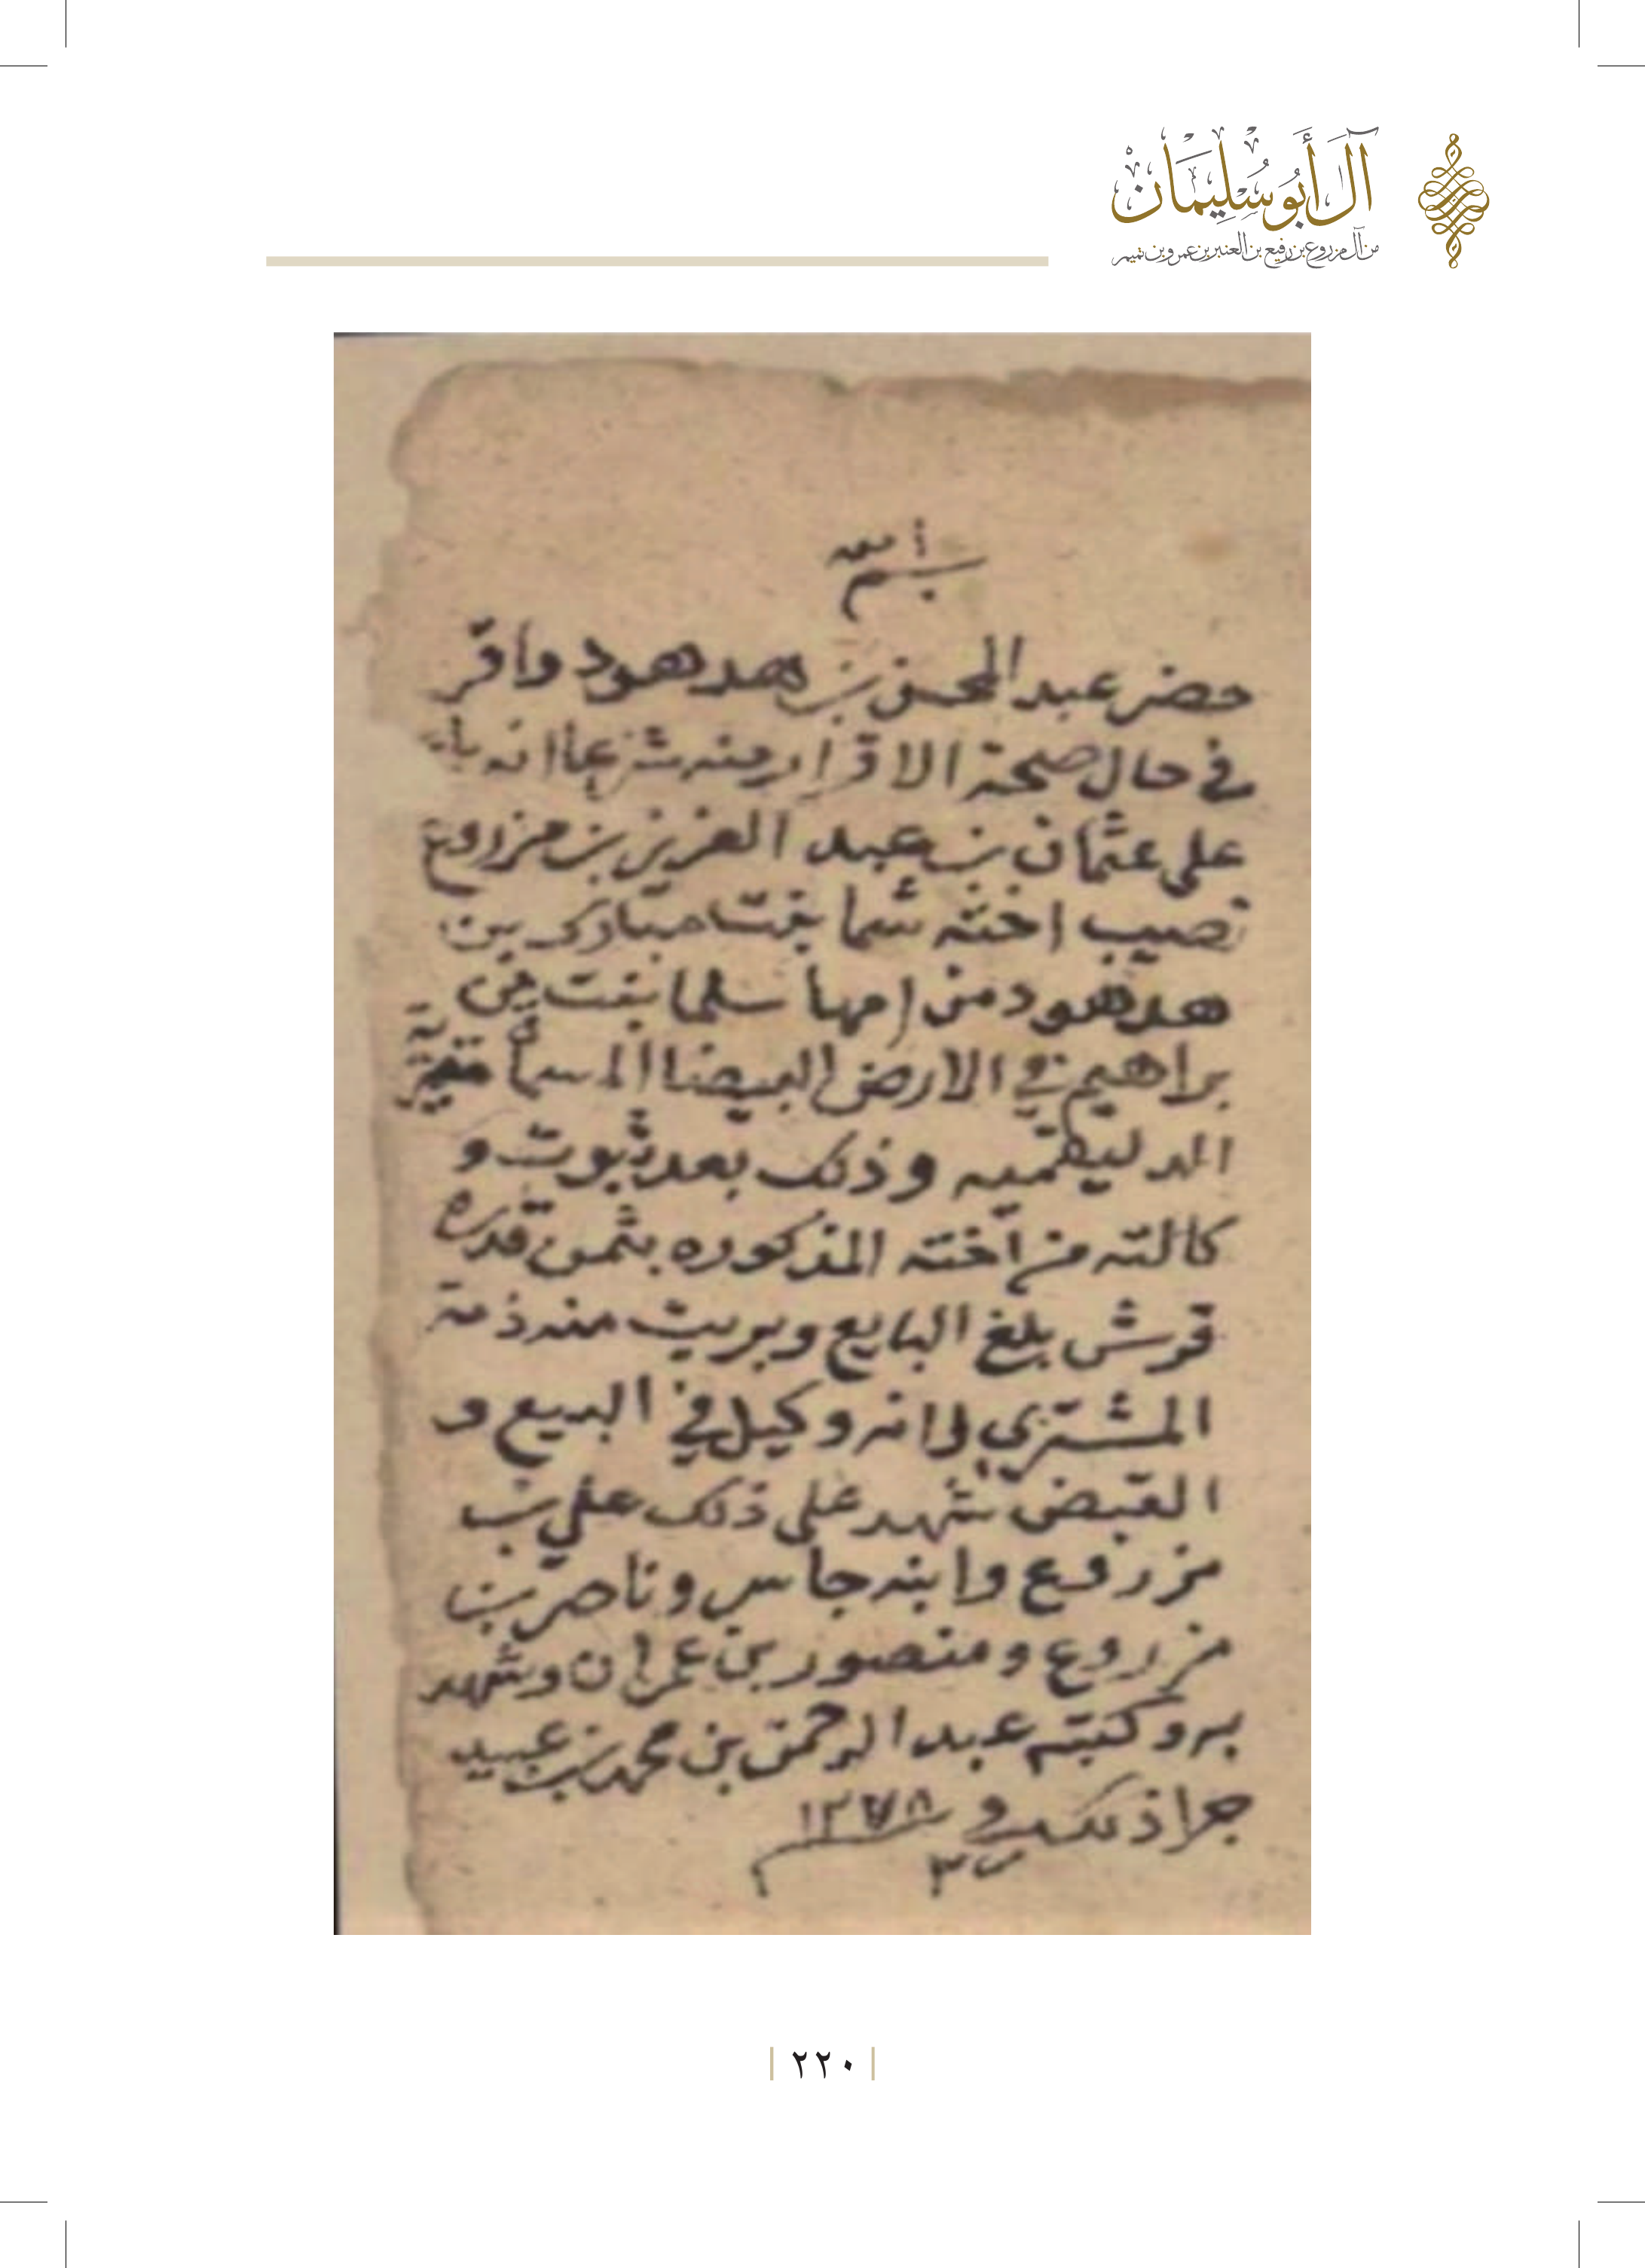 آل أبو سليمان
من آل مزروع بن رفيع بن العنبر بن عمرو بن تميم
بسم
حضر عبد المحسن بن هدهود واقر
في حال صحة الاقرار منه شرعا انه باع
على عثمان بن عبد العزيز بن مزروع
نصيب اخته شما بنت مبارك بن
هدهود من امها سلما بنت
براهيم في الارض البيضا المسما
وذلك بعد ثبوت و
كالته من اخته المذكوره بثمن قدره
قرش بلغ البايع وبريت منه ذمة
المشتري لانه وكيل في البيع و
القبض شهد على ذلك علي بن
مزروع وابنه جاسر وناصر بن
مزروع ومنصور بن عمران وشهد
به وكتبه عبد الرحمن بن محمد بن عبيد
جرا ذلك في
٢٢٠